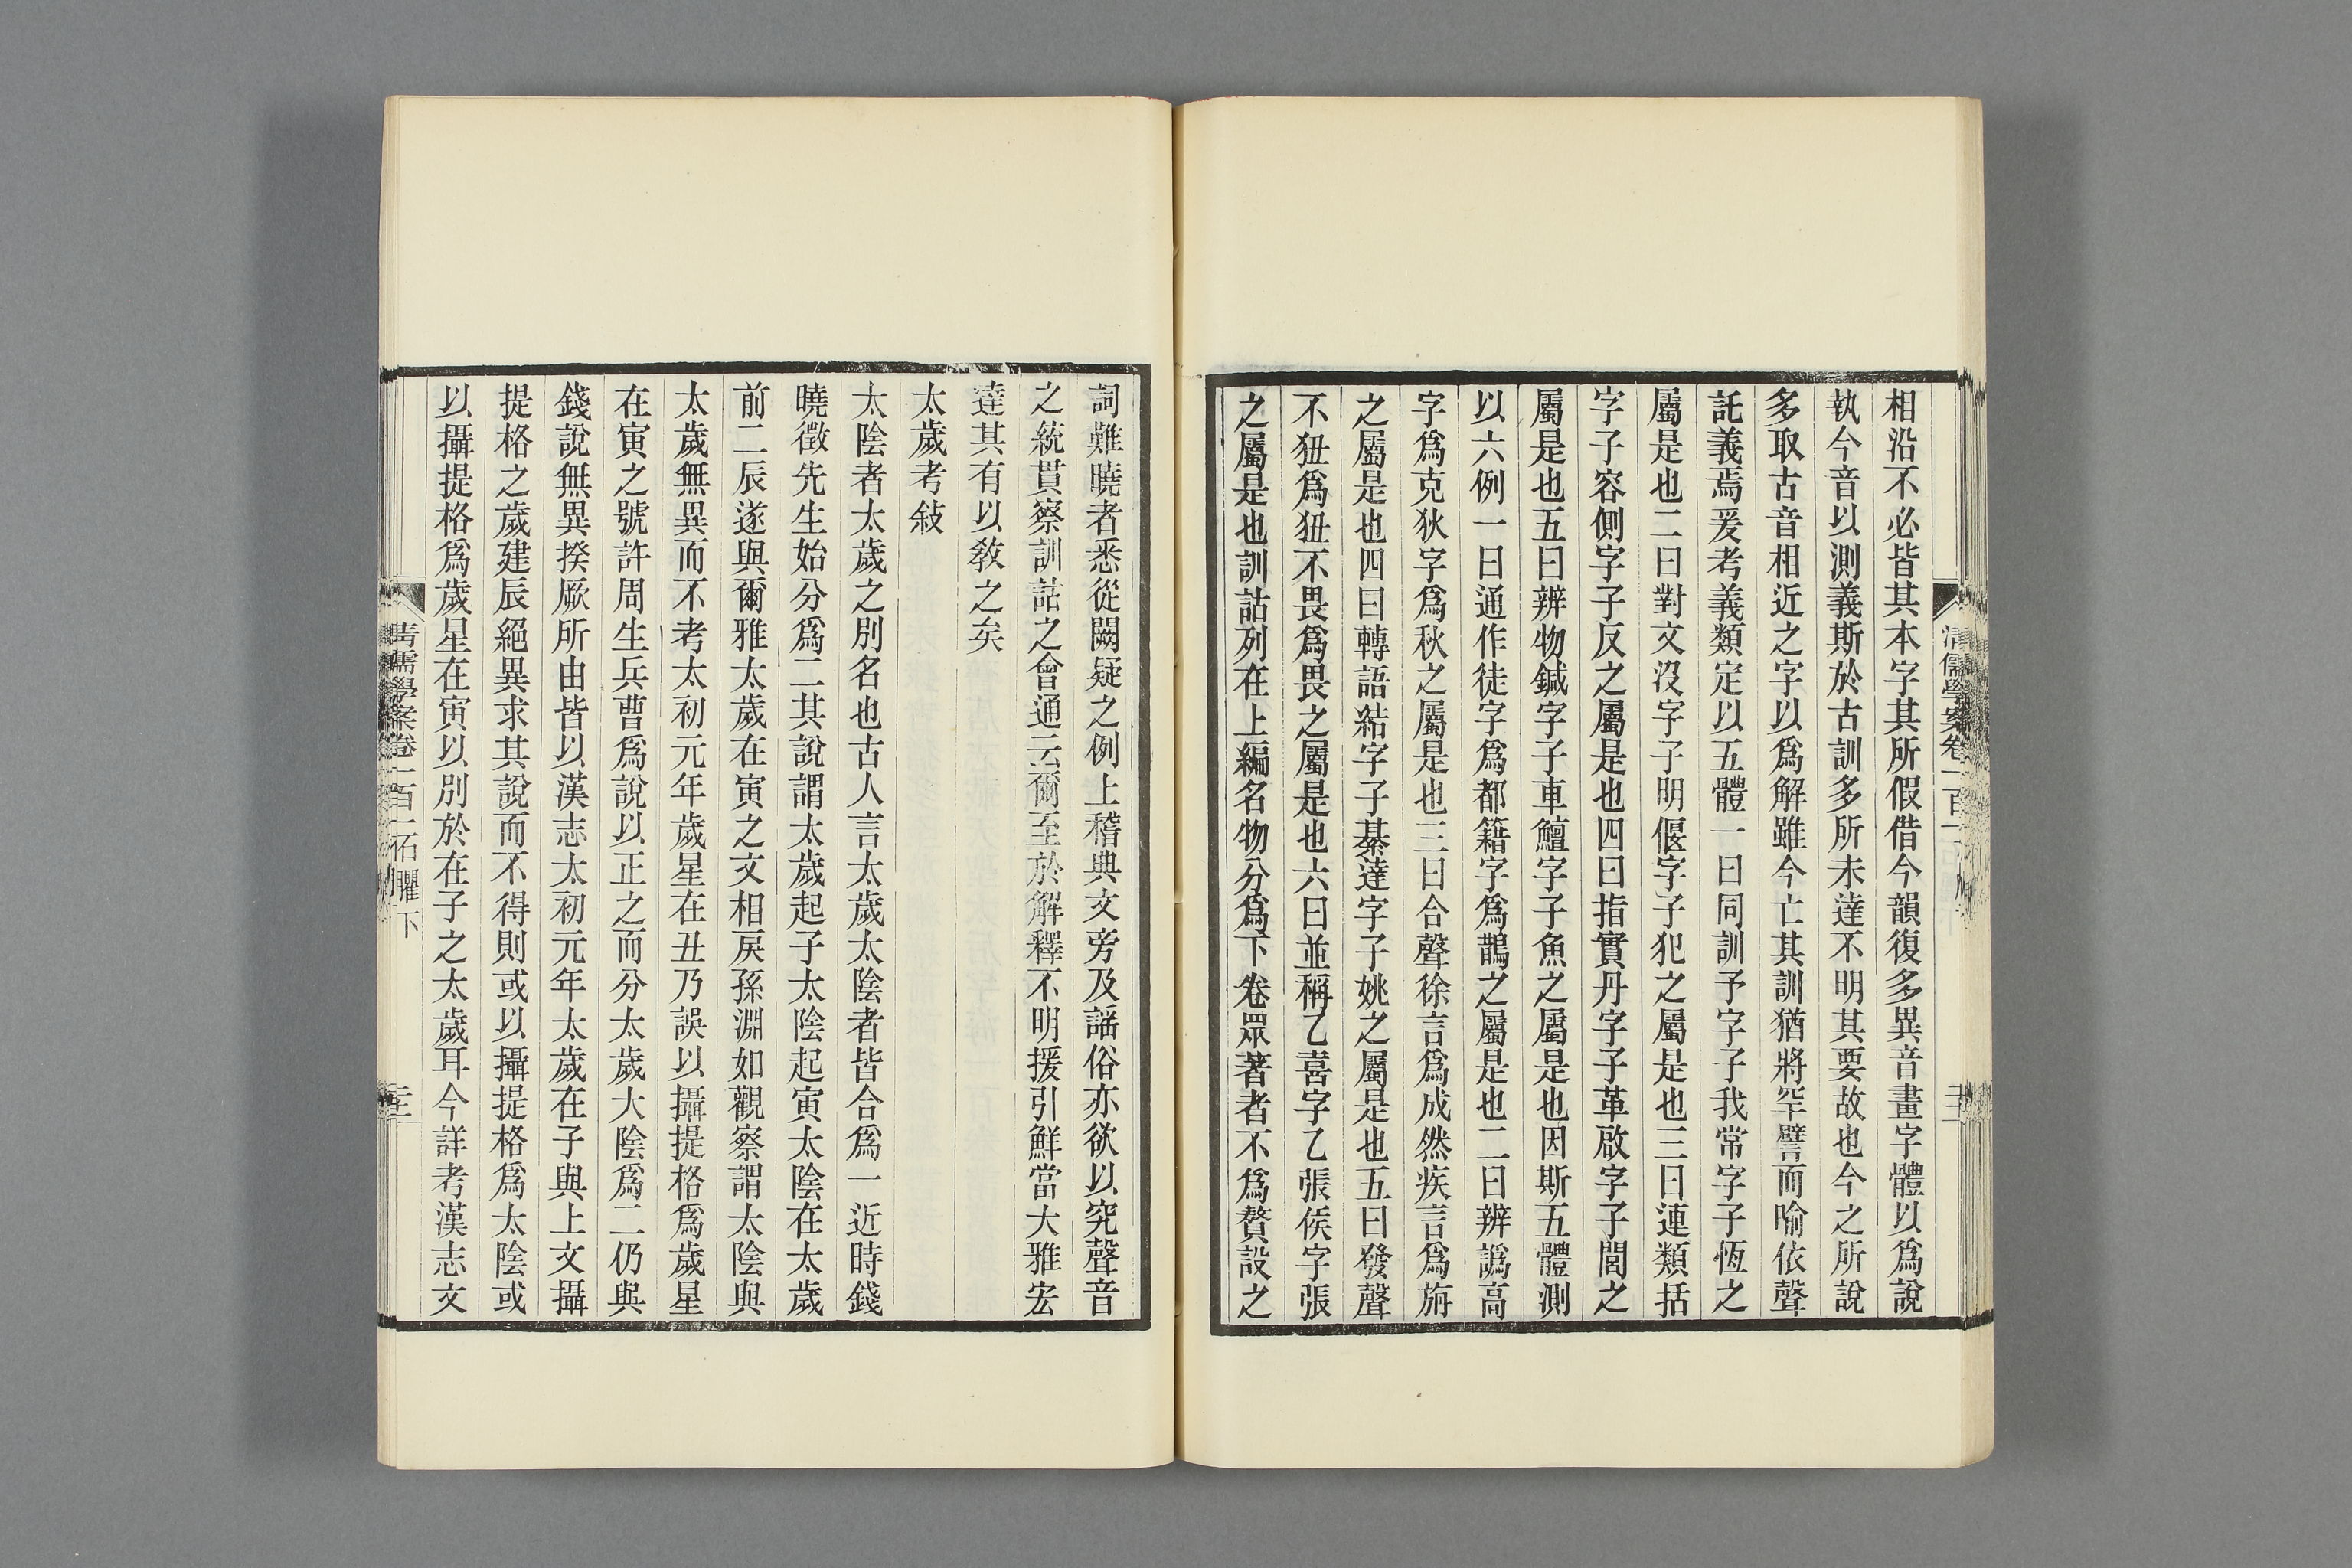 相沿不必皆其本字其所假借今韻復多異音畫字體以爲說
執今音以測義斯於古訓多所未達不明其要故也今之所說
多取古音相近之字以爲解雖今亡其訓猶將罕譬而喻依聲
託義焉爰考義類定以五體一曰同訓予字子我常字子恆之
屬是也二曰對文沒字子明偃字子犯之屬是也三曰連類括
字子容側字子反之屬是也四曰指實丹字子革啟字子閭之
屬是也五曰辨物鍼字子車鱣字子魚之屬是也因斯五體測
以六例一曰通作徒字爲都籍字爲鵲之屬是也二曰辨譌高
字爲克狄字爲秋之屬是也三曰合聲徐言爲成然疾言爲旃
之屬是也四曰轉語結字子綦達字子姚之屬是也五曰發聲
不狃爲狃不畏爲畏之屬是也六曰並稱乙喜字乙張侯字張
之屬是也訓詁列在上編名物分爲下卷眾著者不爲贅設之
詞難曉者悉從闕疑之例上稽典文旁及謠俗亦欲以究聲音
之統貫察訓詁之會通云爾至於解釋不明援引鮮當大雅宏
達其有以教之矣
太歲考敍
太陰者太歲之別名也古人言太歲太陰者皆合爲一近時錢
曉徵先生始分爲二其說謂太歲起子太陰起寅太陰在太歲
前二辰遂與爾雅太歲在寅之文相戾孫淵如觀察謂太陰與
太歲無異而不考太初元年歲星在丑乃誤以攝提格爲歲星
在寅之號許周生兵曹爲說以正之而分太歲大陰爲二仍與
錢說無異揆厥所由皆以漢志太初元年太歲在子與上文攝
提格之歲建辰絕異求其說而不得則或以攝提格爲太陰或
以攝提格爲歲星在寅以別於在子之太歲耳今詳考漢志文
清儒學案卷一百一石臞下